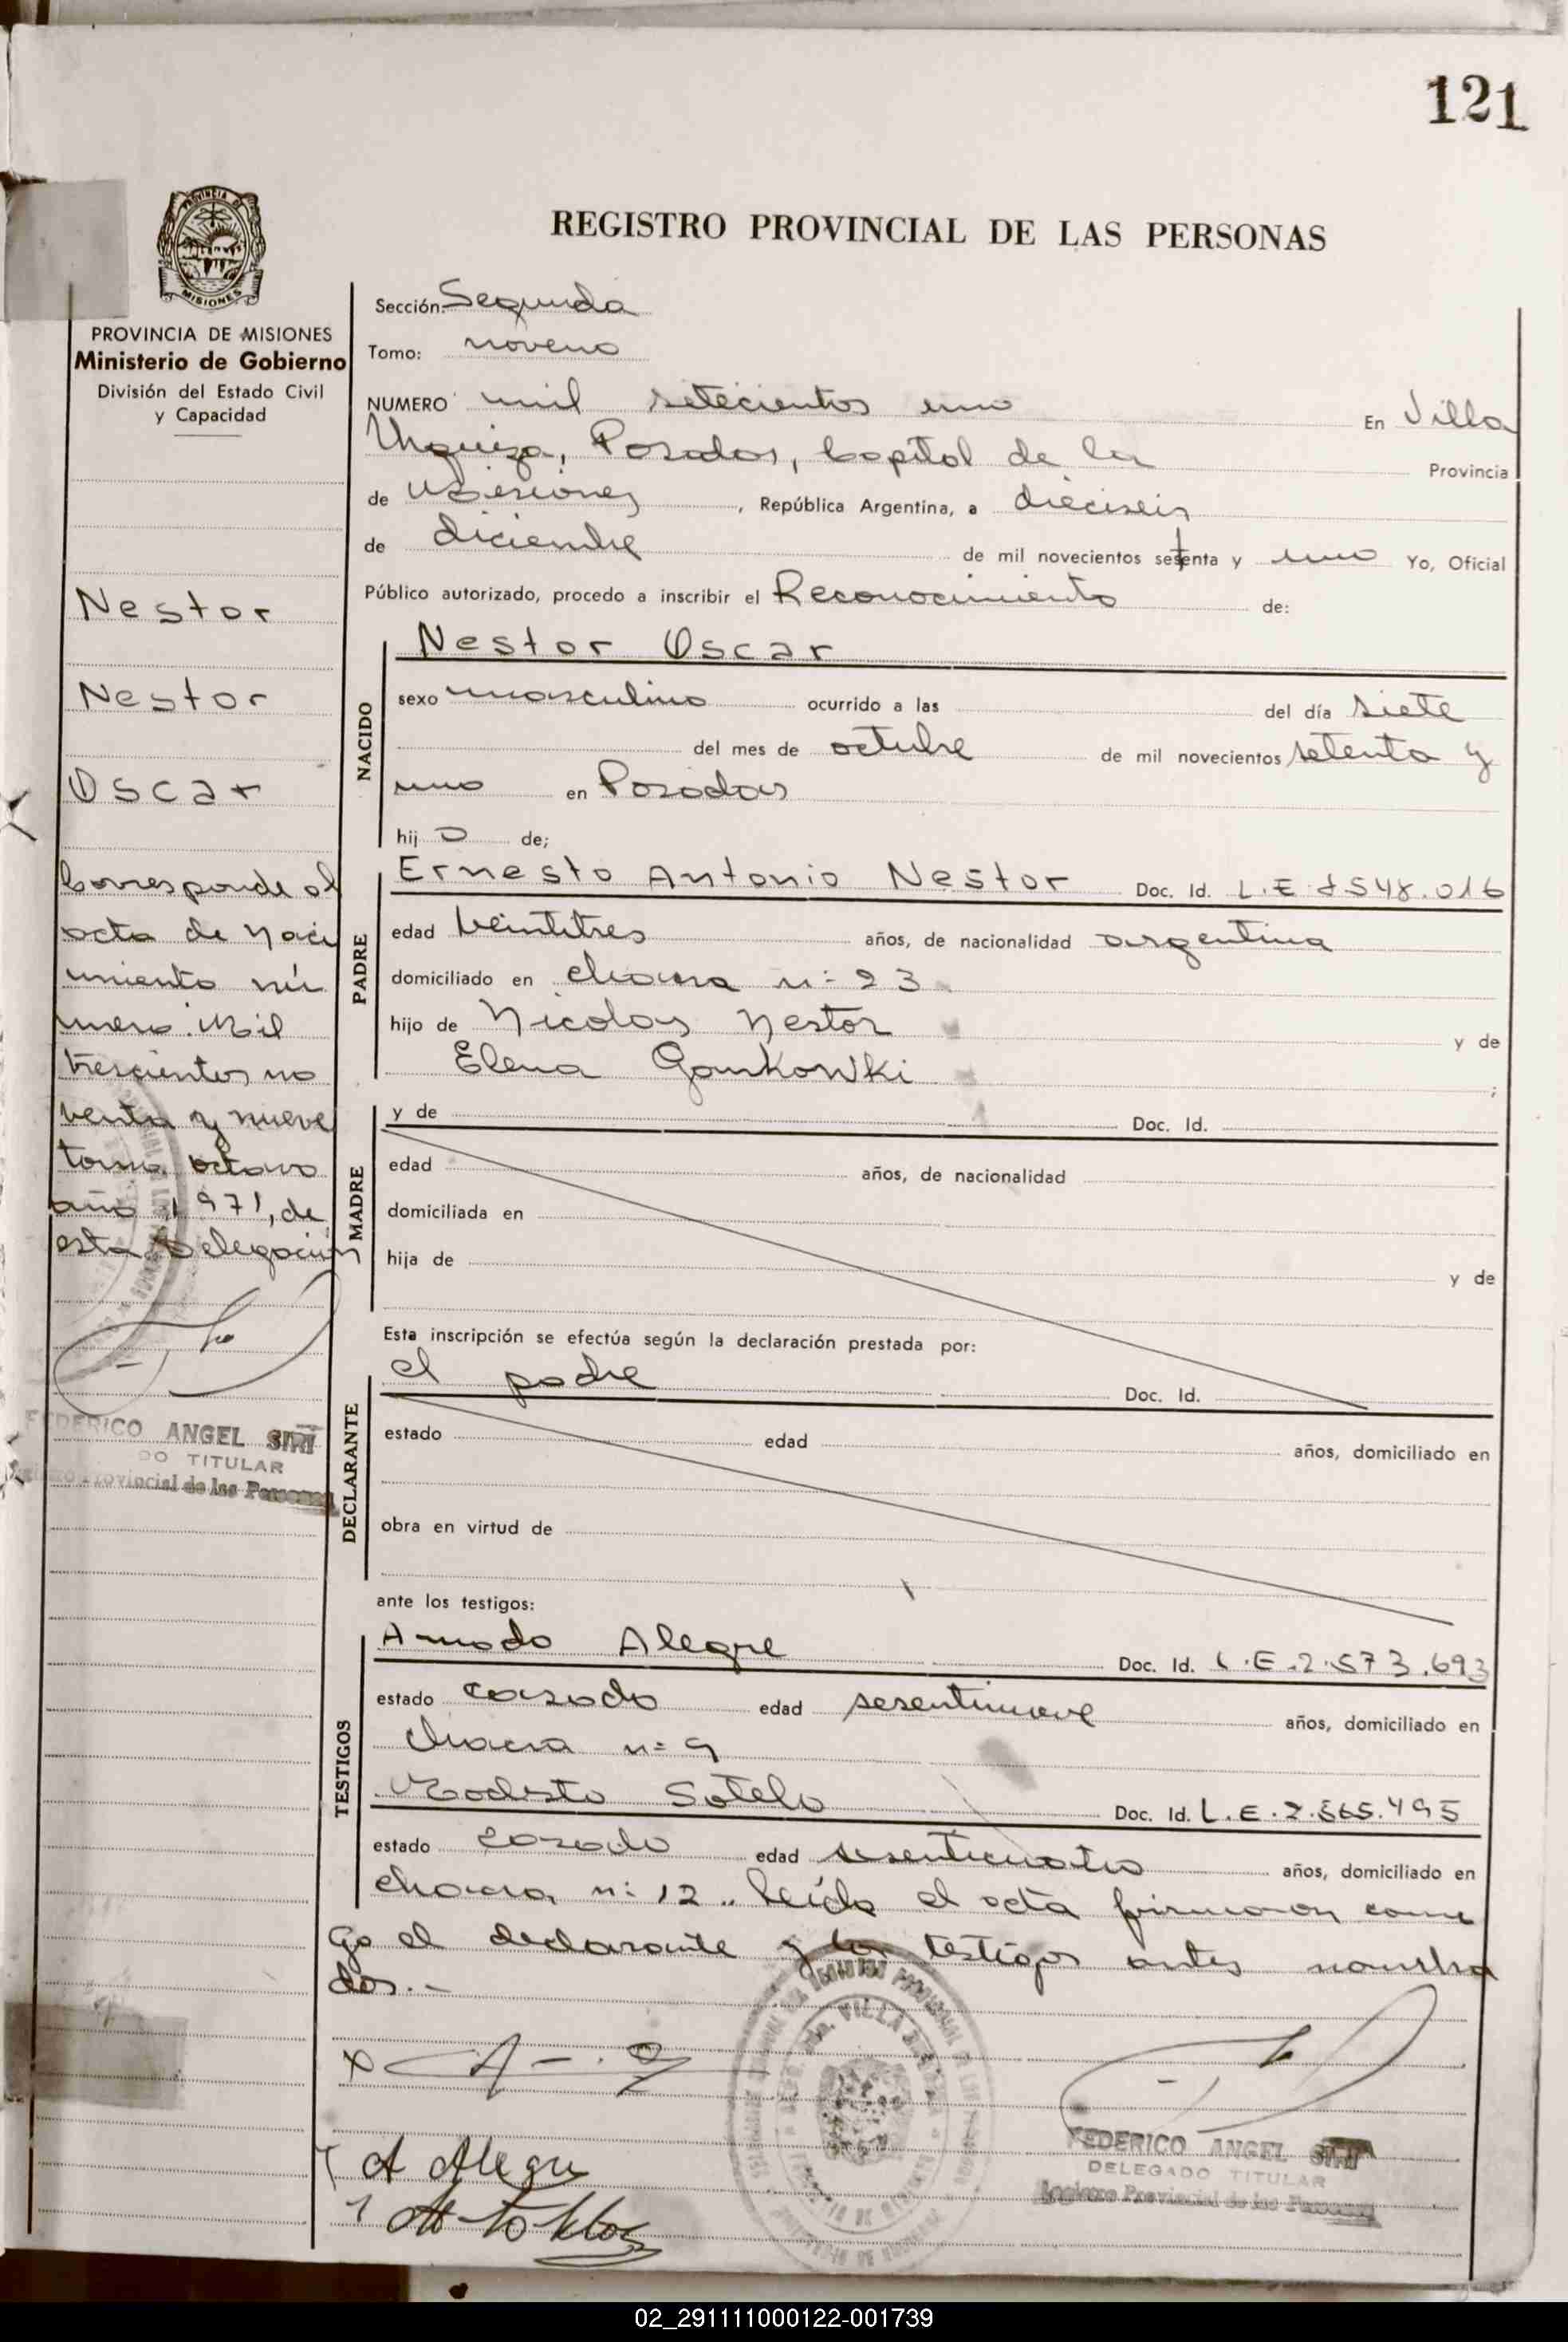 121
PROVINCIA DE
MISIONES
PROVINCIA DE MISIONES
Ministerio de Gobierno
División del Estado Civil
y Capacidad
Nestor
Nestor
Oscar
Corresponde al
acta de naci
miento nú
mero Mil
trescientos no
venta y nueve
tomo octavo
año 1971, de
esta Delegación
FEDERICO ANGEL SIRI
DO TITULAR
Provincial de las Personas
REGISTRO PROVINCIAL DE LAS PERSONAS
Sección: Segunda
Tomo: noveno
NUMERO mil setecientos uno En Villa
Urquiza, Posadas, Capital de la Provincia
de Misiones, República Argentina, a dieciseis
de diciembre de mil novecientos setenta y uno Yo, Oficial
Público autorizado, procedo a inscribir el Reconocimiento de:
NACIDO
Nestor Oscar
sexo masculino ocurrido a las del día siete
del mes de octubre de mil novecientos setenta y
uno en Posadas
hij o de;
PADRE
Ernesto Antonio Nestor Doc. Id. L.E 8548.016
edad veintitres años, de nacionalidad argentina
domiciliado en chacra n: 23
hijo de Nicolas Nestor y de
Elena Gankowki ;
MADRE
y de Doc. Id.
edad años, de nacionalidad
domiciliada en
hija de y de
Esta inscripción se efectúa según la declaración prestada por:
DECLARANTE
el padre Doc. Id.
estado edad años, domiciliado en
obra en virtud de
ante los testigos:
TESTIGOS
Amado Alegre Doc. Id. L.E.2.573.693
estado casado edad sesentinueve años, domiciliado en
chacra n: 9
Modesto Sotelo Doc. Id. L.E.2.565.495
estado casado edad sesenticuatro años, domiciliado en
chacra n: 12.. Leída el acta firmaron conmi
go el declarante y los testigos antes nombra
dos.-
A Alegre
FEDERICO ANGEL SIRI
DELEGADO TITULAR
Registro Provincial de las Personas
02_291111000122-001739